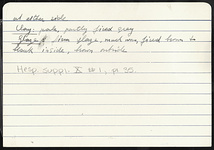 at either side
Clay: pink, partly fired gray
Glaze: thin glaze, much worn, fired brown to
black inside, brown outside
Hesp. Suppl. X # 1, p. 30.